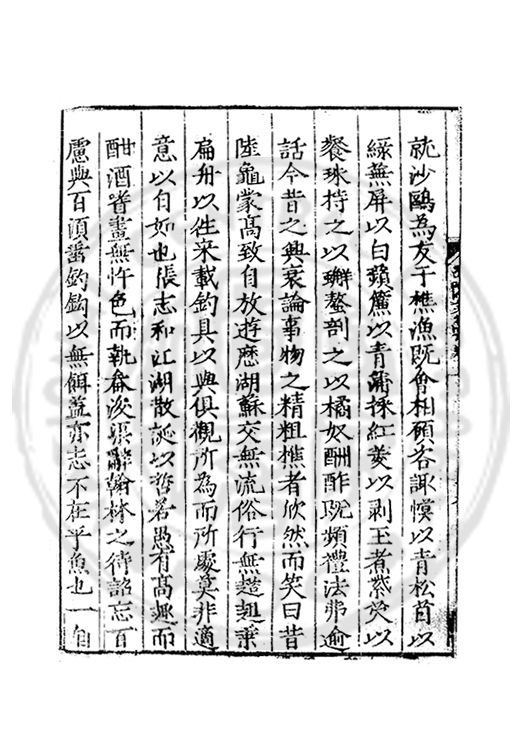 就沙鷗為友于樵漁既會相顧咨諏幙以青松茵以
緑無屏以白蘋薦以青蒲揉紅菱以剥玉煮紫芡以
餐珠持之以蠏螯剖之以橘奴酬酢既頻禮法弗逾
話今昔之興衰論事物之精粗樵者欣然而笑曰昔
陸龜蒙髙致自放遊歷湖蘇交無流俗行無趑趄乗
扁舟以徃来載釣具以與俱觀所為而所處莫非適
意以自如也張志和江湖散誕以哲若愚有髙趣而
酣酒著畫無忤色而執畚浚渠辭翰林之待詔忘百
慮與百須嘗釣鈎以無餌蓋亦志不在乎魚也一自